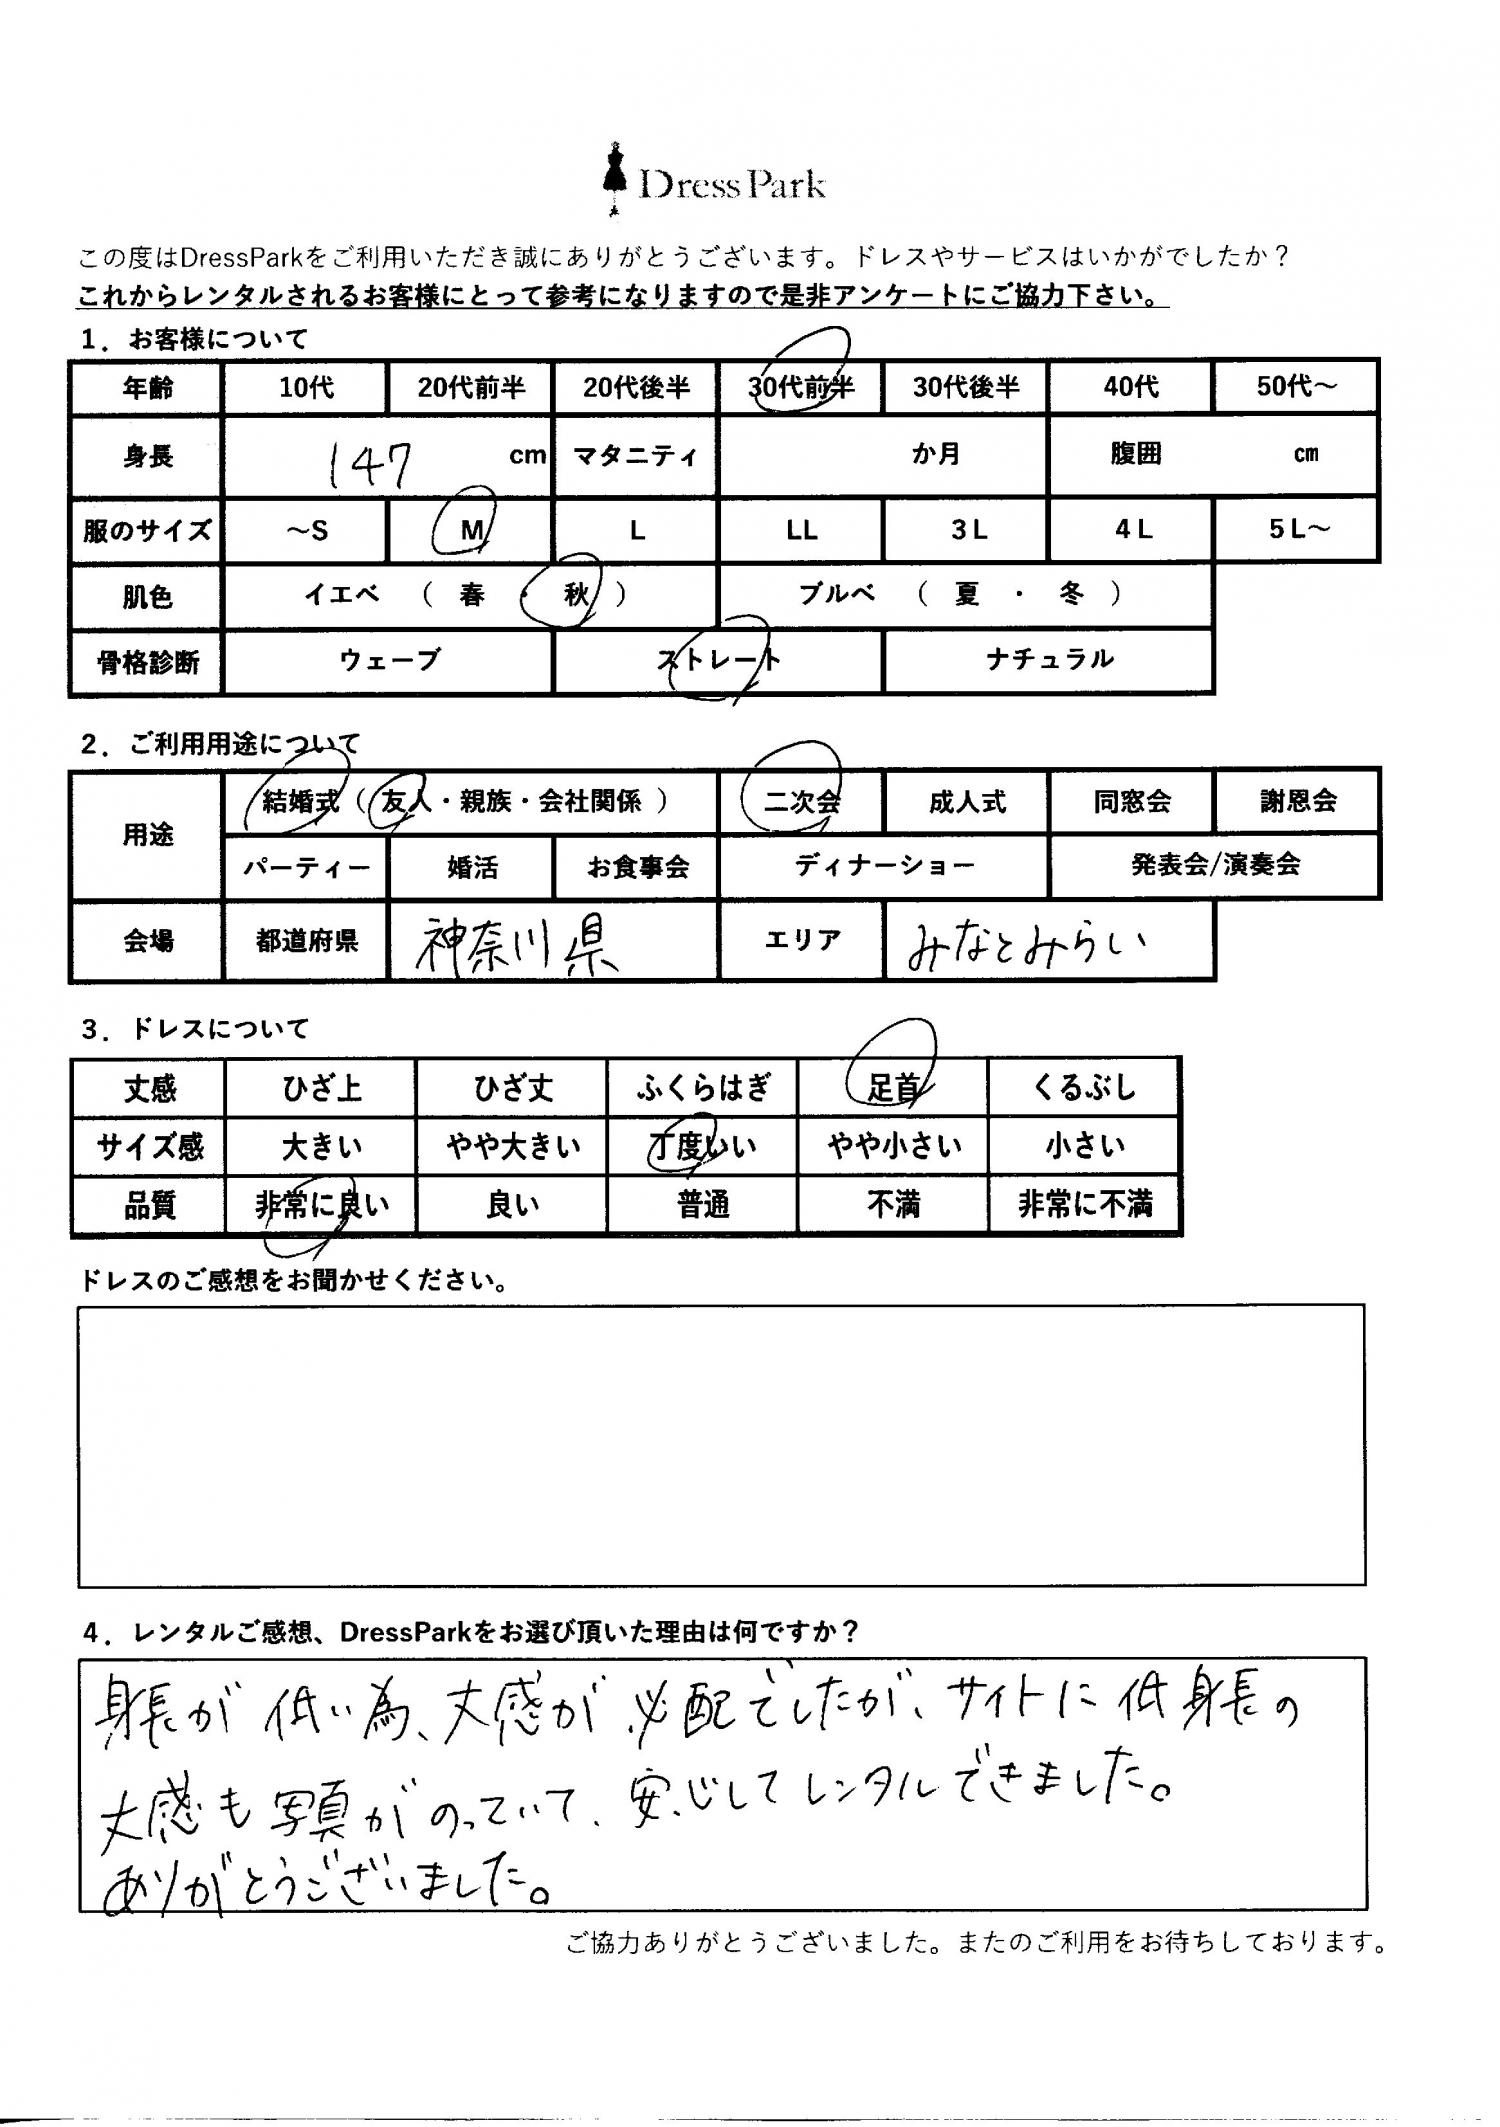 Dress Park
この度はDressParkをご利用いただき誠にありがとうございます。ドレスやサービスはいかがでしたか？
これからレンタルされるお客様にとって参考になりますので是非アンケートにご協力下さい。
1．お客様について
年齢 10代 20代前半 20代後半 30代前半 30代後半 40代 50代～
身長 147 cm マタニティ か月 腹囲 cm
服のサイズ ～S M L LL 3L 4L 5L～
肌色 イエベ （ 春 ・ 秋 ） ブルベ （ 夏 ・ 冬 ）
骨格診断 ウェーブ ストレート ナチュラル
2．ご利用用途について
用途 結婚式（ 友人・親族・会社関係 ） 二次会 成人式 同窓会 謝恩会
パーティー 婚活 お食事会 ディナーショー 発表会/演奏会
会場 都道府県 神奈川県 エリア みなとみらい
3．ドレスについて
丈感 ひざ上 ひざ丈 ふくらはぎ 足首 くるぶし
サイズ感 大きい やや大きい 丁度いい やや小さい 小さい
品質 非常に良い 良い 普通 不満 非常に不満
ドレスのご感想をお聞かせください。
4．レンタルご感想、DressParkをお選び頂いた理由は何ですか？
身長が低い為、丈感が心配でしたが、サイトに低身長の
丈感も写真がのっていて、安心してレンタルできました。
ありがとうございました。
ご協力ありがとうございました。またのご利用をお待ちしております。